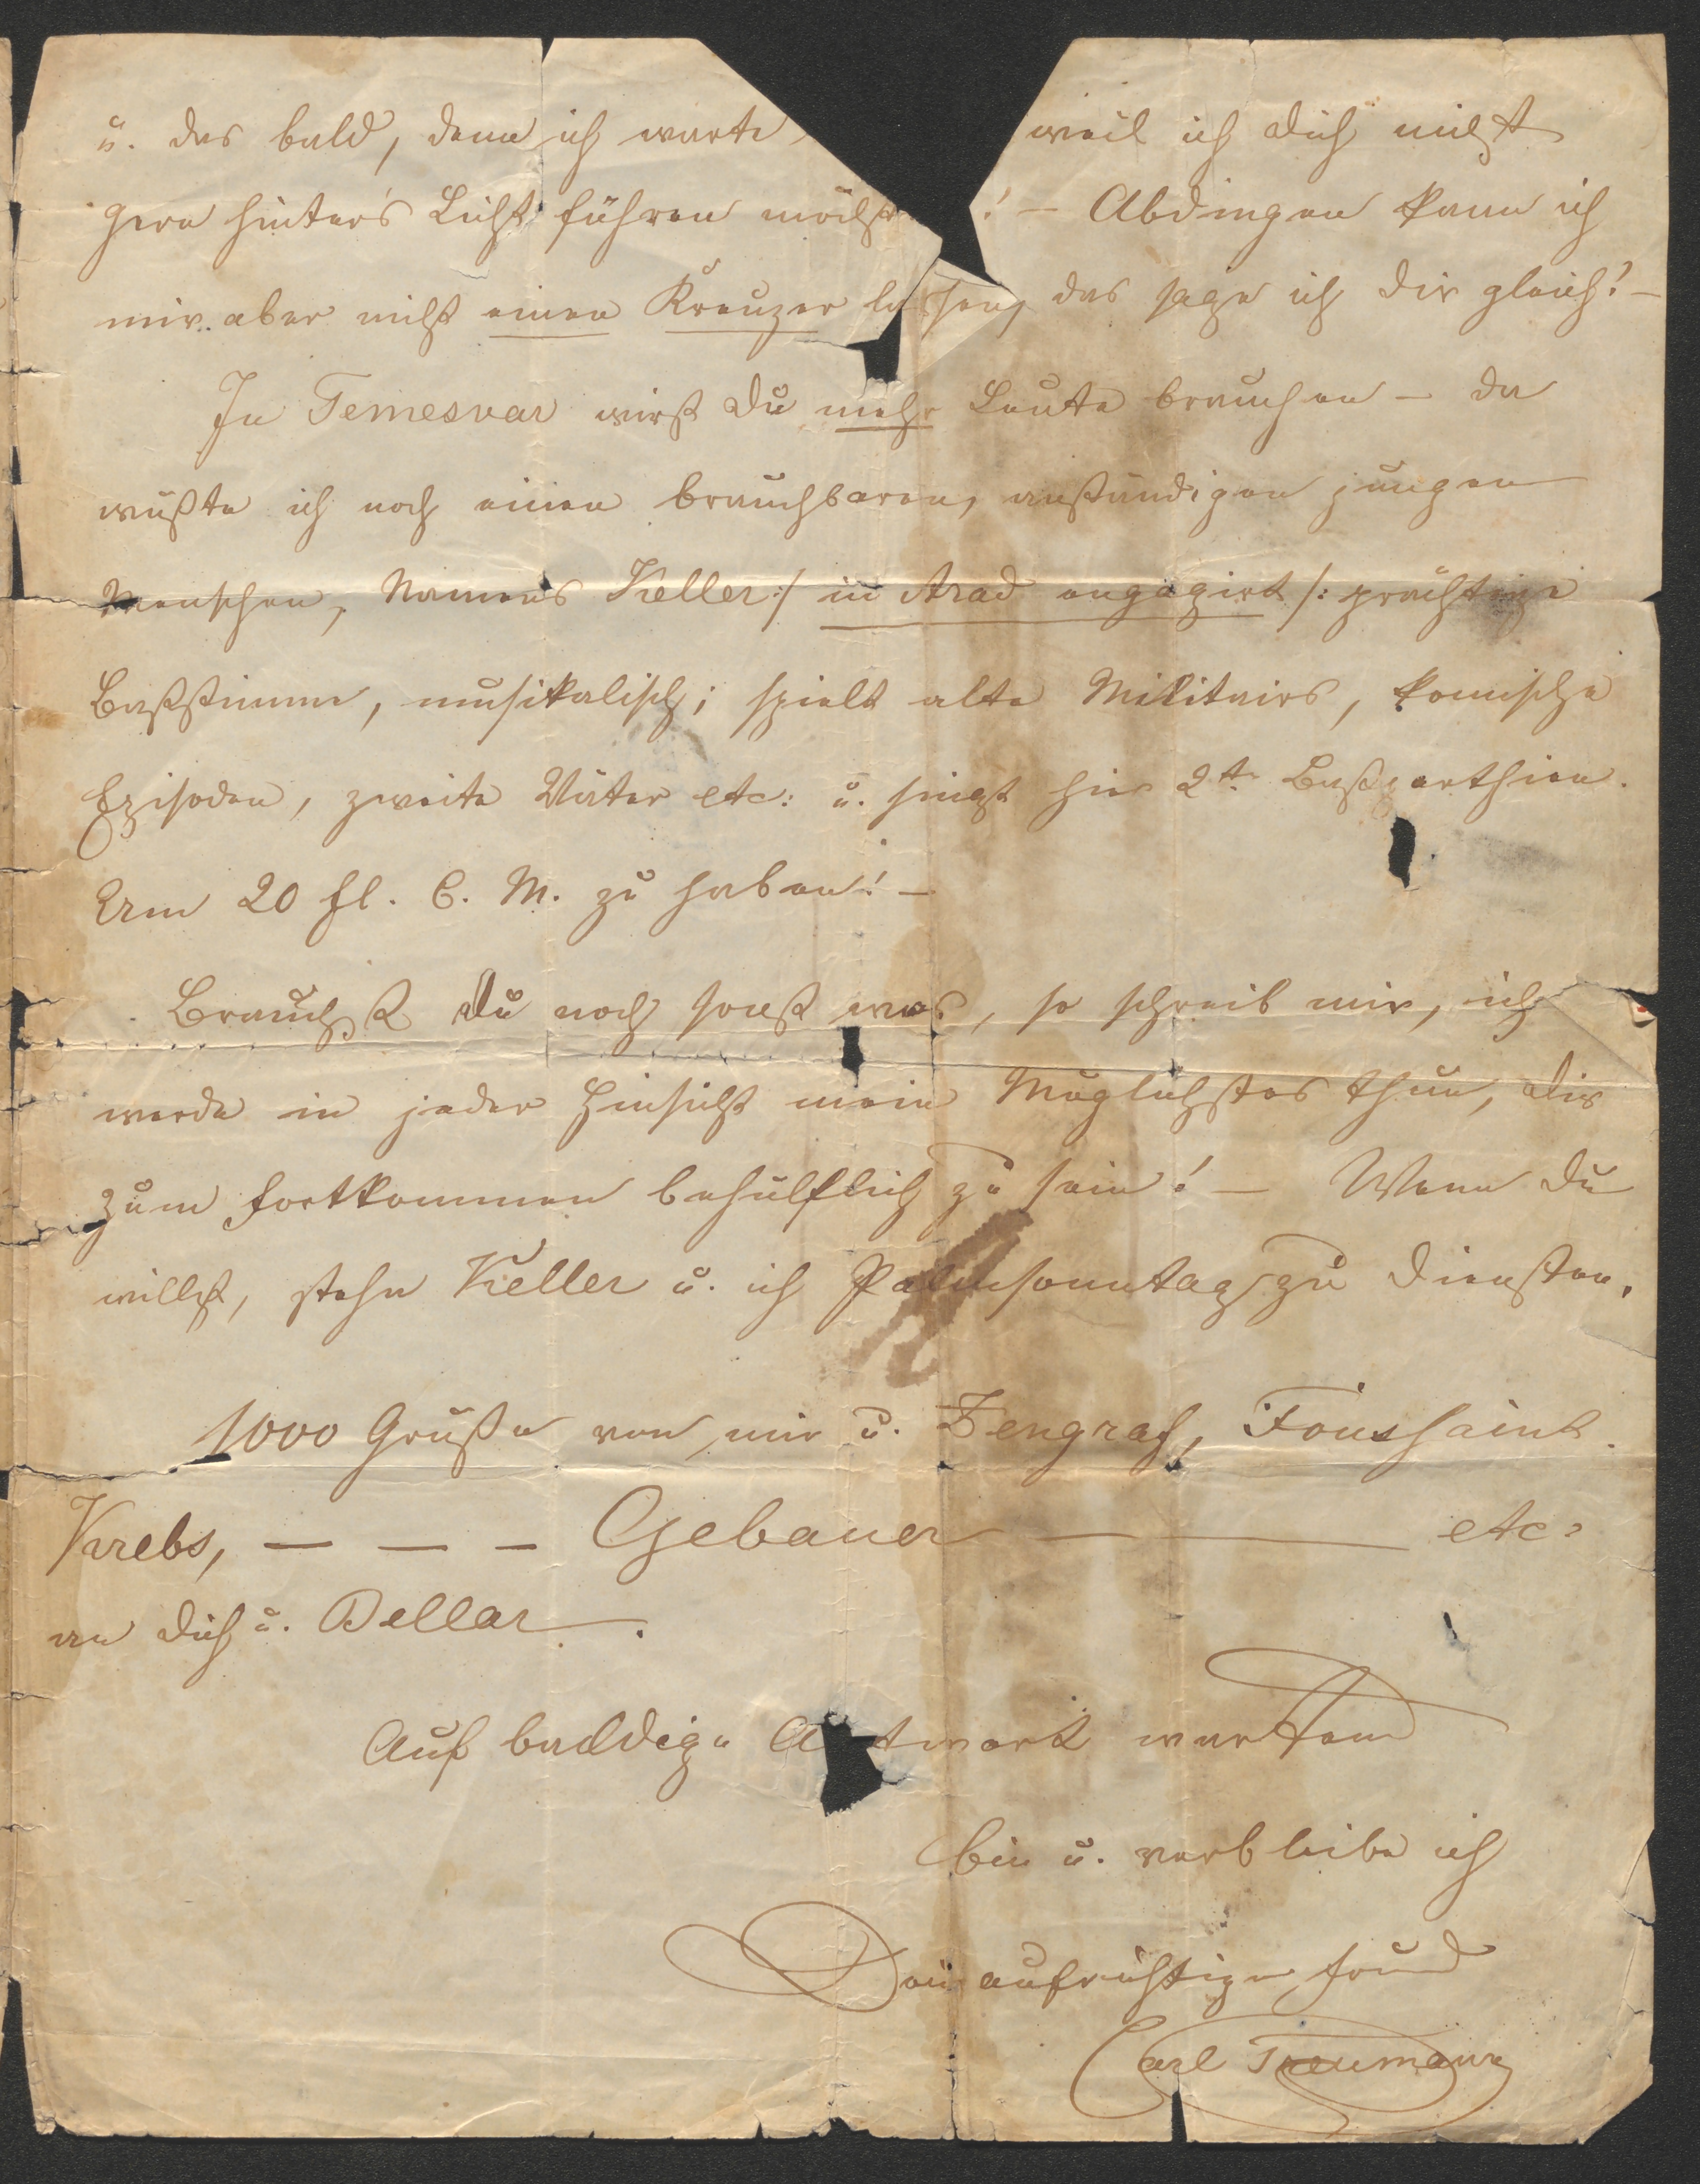 u. das bald, denn ich warte weil ich Dich nicht
gern hinter's Licht führen möchte! – Abdingen kann ich
mir aber nicht einen Kreuzer lassen, das sage ich Dir gleich! –
In Temesvar wirst Du mehr Leute brauchen – da
wüßte ich noch einen brauchbaren, anständigen jungen
Menschen, Namens Keller :/ in Arad engagirt /: prächtige
Baßstimme, musikalisch; spielt alte Militairs, komische
Episoden, zweite Väter etc: u. singt hier 2te Baßparthien.
Um 20 fl. C. M. zu haben! –
Brauchst Du noch sonst was, so schreib mir, ich
werde in jeder Hinsicht mein Möglichstes thun, Dir
zum Fortkommen behülflich zu sein! – Wenn Du
willst, stehn Keller u. ich Palmsonntag zu Diensten.
1000 Grüße von mir u. Zengraf, Toussaint.
Krebs, – – – Gebauer – etc:
an Dich u. Dellar.
Auf baldige A twort wartend
bin u. verbleibe ich
Dein aufrichtiger Freund
Carl Treumann